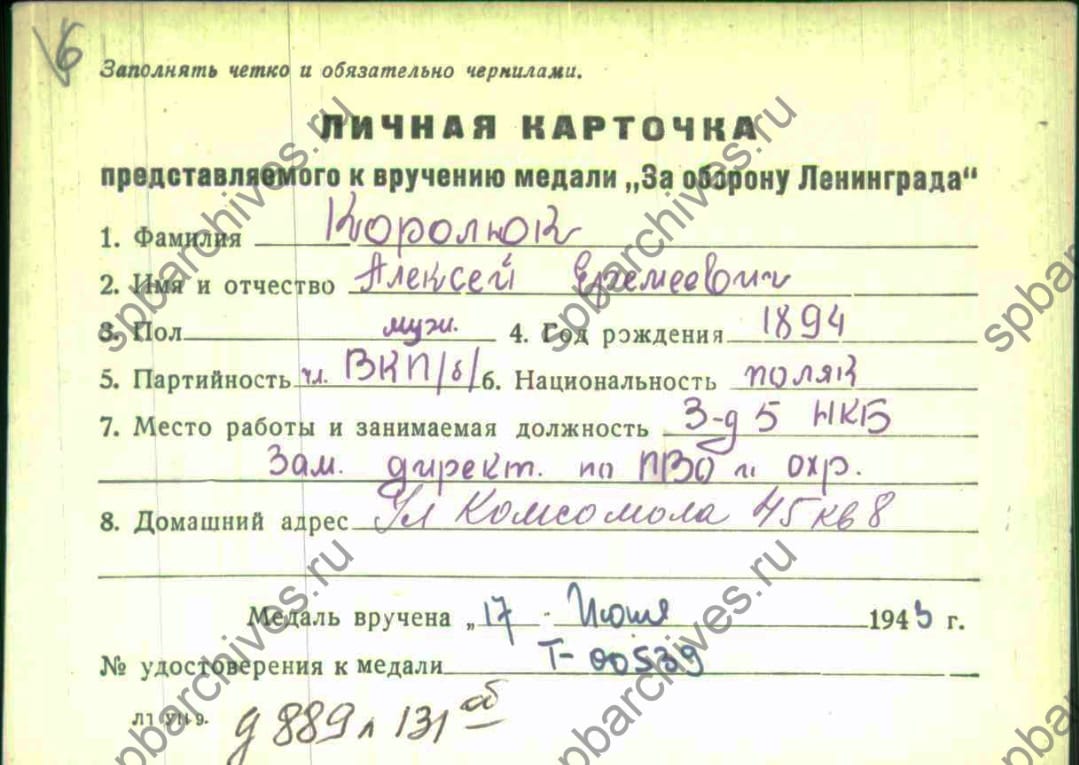 V6
Заполнять четко и обязательно чернилами.
ЛИЧНАЯ КАРТОЧКА
представляемого к вручению медали „За оборону Ленинграда“
1. Фамилия Королюк
2. Имя и отчество Алексей Еремеевич
3. Пол муж. 4. Год рождения 1894
5. Партийность чл. ВКП/б/ 6. Национальность поляк
7. Место работы и занимаемая должность З-д 5 НКБ
Зам. директ. по ПВО и охр.
8. Домашний адрес Ул Комсомола 45 кв 8
Медаль вручена „17 - Июля 1943 г.
№ удостоверения к медали Т-00539
д 889 л 131 об
spbarchives.ru
spbarchives.ru
spbarchives.ru
spbarchives.ru